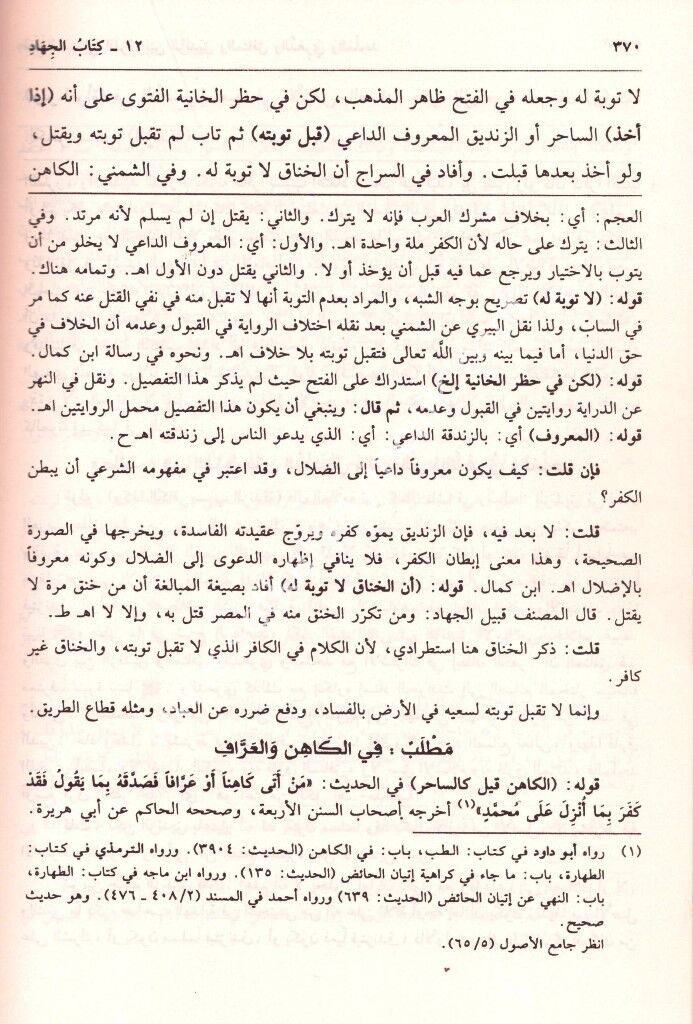 ٣٧٠
١٢ - كِتَابُ الجِهَادِ
لا توبة له وجعله في الفتح ظاهر المذهب، لكن في حظر الخانية الفتوى على أنه (إذا
أخذ) الساحر أو الزنديق المعروف الداعي (قبل توبته) ثم تاب لم تقبل توبته ويقتل،
ولو أخذ بعدها قبلت. وأفاد في السراج أن الخناق لا توبة له. وفي الشمني: الكاهن
العجم: أي: بخلاف مشرك العرب فإنه لا يترك. والثاني: يقتل إن لم يسلم لأنه مرتد. وفي
الثالث: يترك على حاله لأن الكفر ملة واحدة اهـ. والأول: أي: المعروف الداعي لا يخلو من أن
يتوب بالاختيار ويرجع عما فيه قبل أن يؤخذ أو لا. والثاني يقتل دون الأول اهـ. وتمامه هناك.
قوله: (لا توبة له) تصريح بوجه الشبه، والمراد بعدم التوبة أنها لا تقبل منه في نفي القتل عنه كما مر
في السابّ، ولذا نقل البيري عن الشمني بعد نقله اختلاف الرواية في القبول وعدمه أن الخلاف في
حق الدنيا، أما فيما بينه وبين اللّه تعالى فتقبل توبته بلا خلاف اهـ. ونحوه في رسالة ابن كمال.
قوله: (لكن في حظر الخانية إلخ) استدراك على الفتح حيث لم يذكر هذا التفصيل. ونقل في النهر
عن الدراية روايتين في القبول وعدمه، ثم قال: وينبغي أن يكون هذا التفصيل محمل الروايتين اهـ.
قوله: (المعروف) أي: بالزندقة الداعي: أي: الذي يدعو الناس إلى زندقته اهـ ح.
فإن قلت: كيف يكون معروفاً داعياً إلى الضلال، وقد اعتبر في مفهومه الشرعي أن يبطن
الكفر؟
قلت: لا بعد فيه، فإن الزنديق يموّه كفره ويروّج عقيدته الفاسدة، ويخرجها في الصورة
الصحيحة، وهذا معنى إبطان الكفر، فلا ينافي إظهاره الدعوى إلى الضلال وكونه معروفاً
بالإضلال اهـ. ابن كمال. قوله: (أن الخناق لا توبة له) أفاد بصيغة المبالغة أن من خنق مرة لا
يقتل. قال المصنف قبيل الجهاد: ومن تكرّر الخنق منه في المصر قتل به، وإلا لا اهـ ط.
قلت: ذكر الخناق هنا استطرادي، لأن الكلام في الكافر الذي لا تقبل توبته، والخناق غير
كافر.
وإنما لا تقبل توبته لسعيه في الأرض بالفساد، ودفع ضرره عن العباد، ومثله قطاع الطريق.
مَطْلَب: فِي الكَاهِنِ وَالعَرَّافِ
قوله: (الكاهن قيل كالساحر) في الحديث: «مَنْ أَتَى كَاهِناً أَوْ عَرَّافاً فَصَدَّقَهُ بِمَا يَقُولُ فَقَدْ
كَفَرَ بِمَا أُنْزِلَ عَلَى مُحمَّدٍ»(١) أخرجه أصحاب السنن الأربعة، وصححه الحاكم عن أبي هريرة.
(١) رواه أبو داود في كتاب: الطب، باب: في الكاهن (الحديث: ٣٩٠٤). ورواه الترمذي في كتاب:
الطهارة، باب: ما جاء في كراهية إتيان الحائض (الحديث: ١٣٥). ورواه ابن ماجه في كتاب: الطهارة،
باب: النهي عن إتيان الحائض (الحديث: ٦٣٩) ورواه أحمد في المسند (٤٠٨/٢ - ٤٧٦). وهو حديث
صحيح.
انظر جامع الأصول (٦٥/٥).